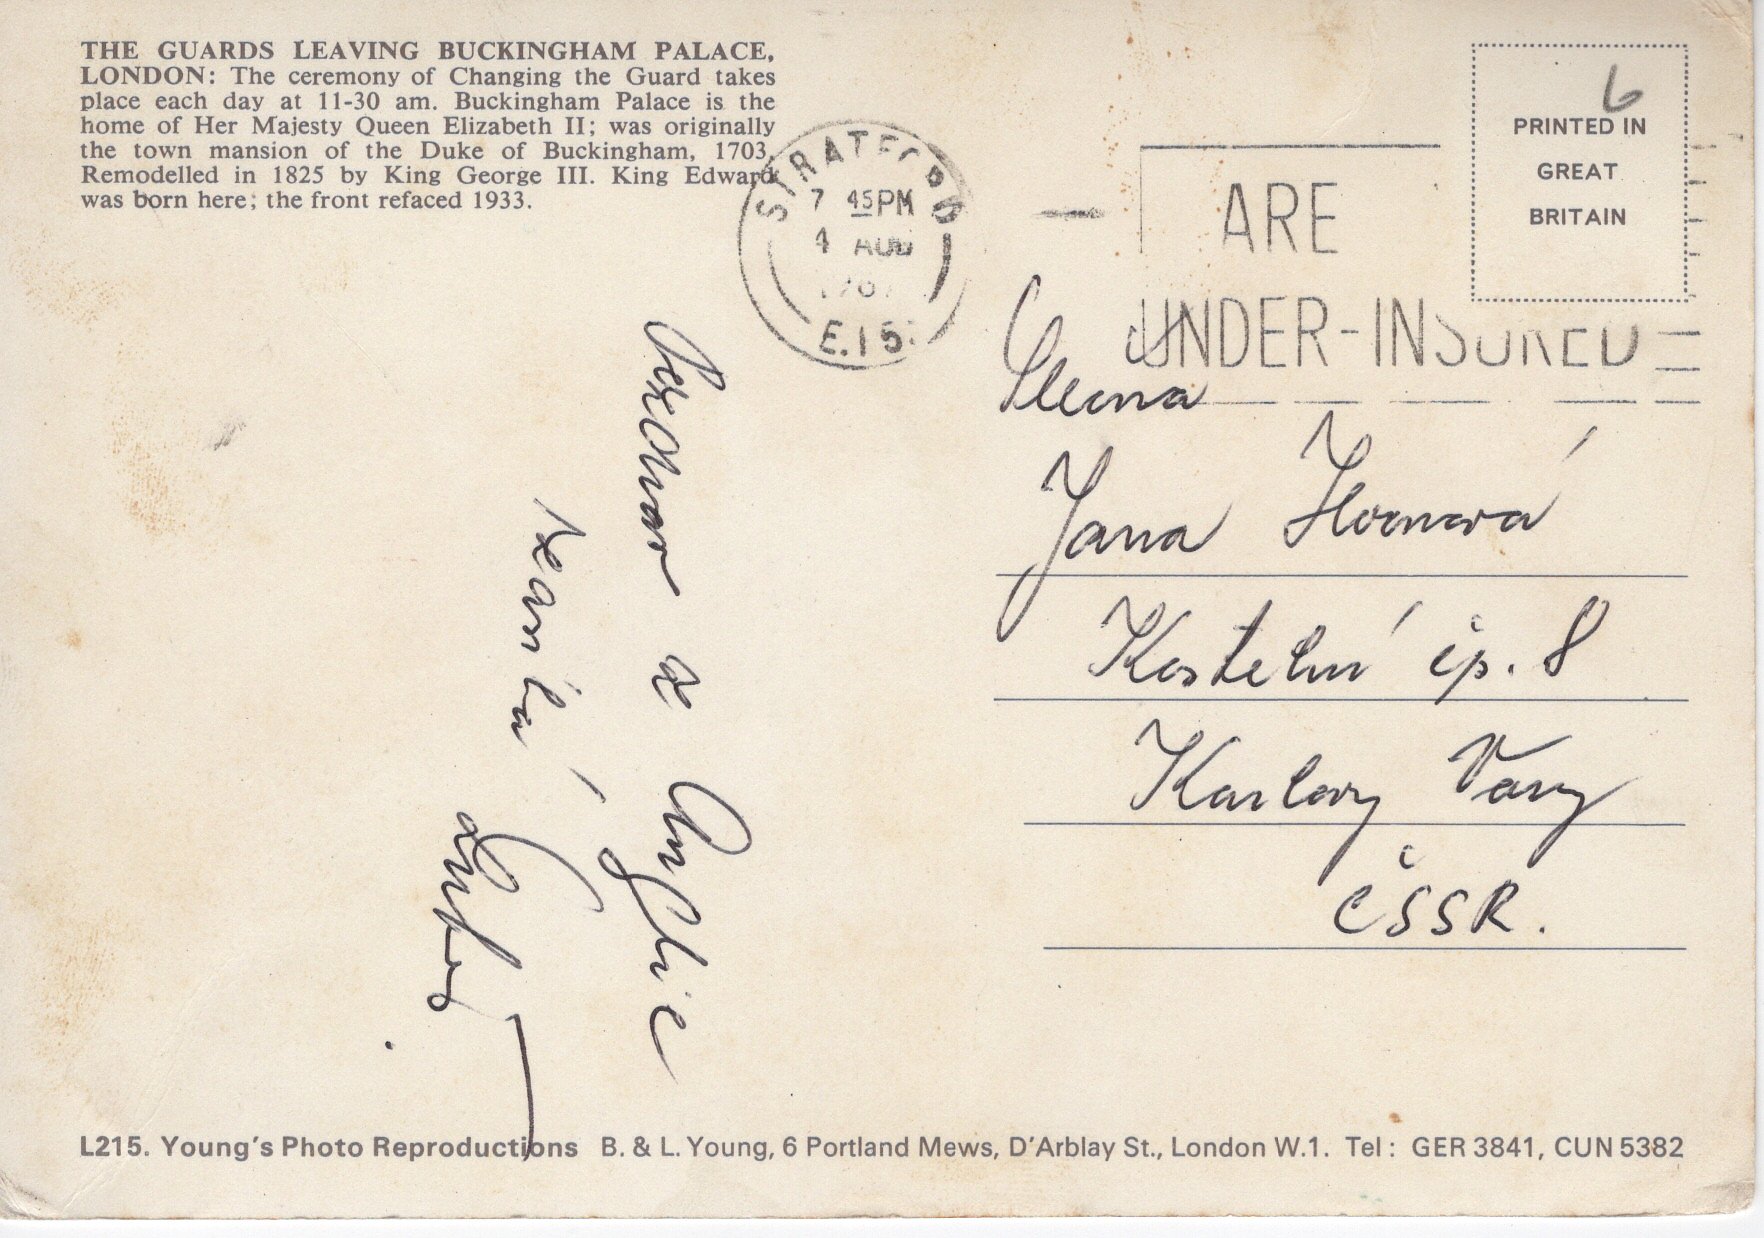 THE GUARDS LEAVING BUCKINGHAM PALACE,
LONDON: The ceremony of Changing the Guard takes
place each day at 11-30 am. Buckingham Palace is the
home of Her Majesty Queen Elizabeth II; was originally
the town mansion of the Duke of Buckingham, 1703.
Remodelled in 1825 by King George III. King Edward
was born here; the front refaced 1933.
STRATFORD
7 45PM
4 AUG
E.15.
ARE
UNDER-INSURED
6
PRINTED IN
GREAT
BRITAIN
Pozdrav z Anglie
Jana
Kostelní čp. 8
Karlovy Vary
ČSSR.
L215. Young's Photo Reproductions B. & L. Young, 6 Portland Mews, D'Arblay St., London W.1. Tel: GER 3841, CUN 5382